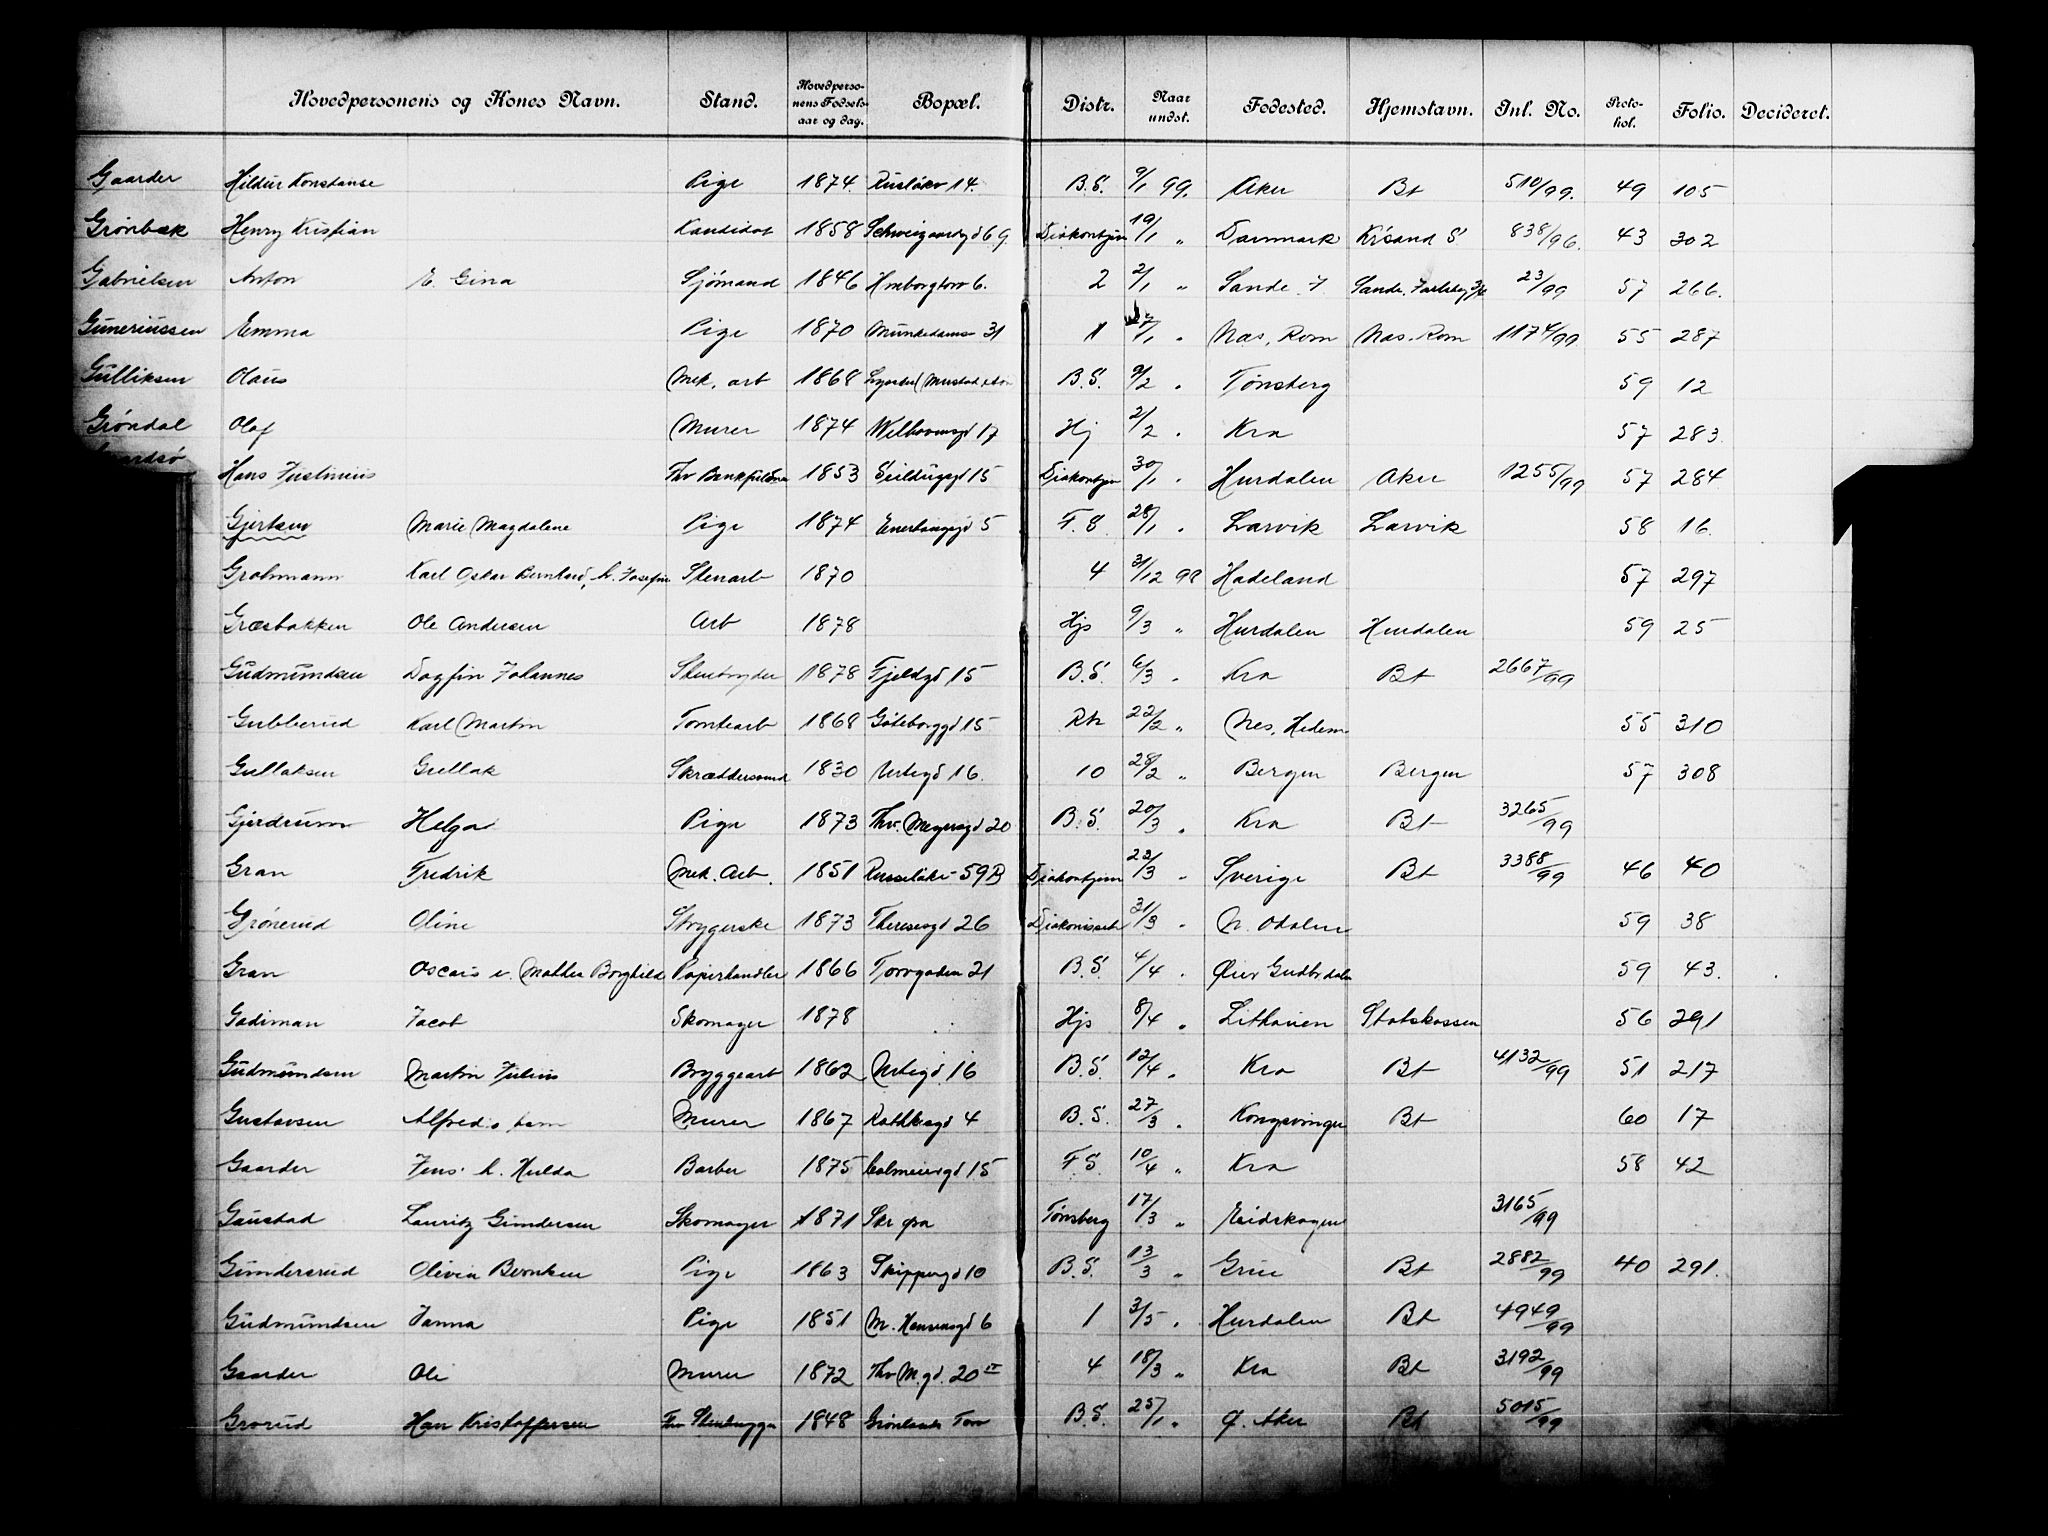 Hovedpersonens og Kones Navn. Stand. Hovedpersonens Fødselsaar og dag. Bopæl. Distr. Naar undst. Fødested. Hjemstavn. Inl. No. Protokol. Folio. Decideret.
Gaarder Hildur Konstanse Pige 1874 Rusløkv 14. B.S. 9/1 99. Aker Bt 510/99. 49 105
Grönbæk Henry Kristian Kandidat 1858 Schweigaardsgd 69 Diakonhjem 19/1 " Danmark Kr'sand S. 838/96. 43 302
Gabrielsen Anton E. Gina Sjömand 1846 6. 2 2/1 " Sande. J. Sande. 23/99 57 266.
Guneriussen Emma Pige 1870 Munkedams 31 1 27/1 " Næs, Rom Næs. Rom 1174/99 55 287
Gulliksen Olaus Mek. arb 1868 B.S. 9/2 " Tönsberg 59 12
Gröndal Olaf Murer 1874 Welhavensgd 17 Hj 2/2 " Kra 57 283.
Hans Justinius Fhv 1853 Seildugsgd 15 Diakonhjem 30/1 " Hurdalen Aker 1255/99 57 284
Gjertsen Marie Magdalene Pige 1874 Enerhauggd 5 F.S. 28/1 " Larvik Larvik 58 16.
Grohmann Karl Oskar Bernhard, h. Josefine Stenarb 1870 4 31/12 98 Hadeland 57 297
Græsbakken Ole Andersen Arb 1878 Hjs 9/3 " Hurdalen Hurdalen 59 25
Gudmundsen Dagfin Johannes Stenbryder 1878 Fjeldgd 15 B.S. 6/3 " Kra Bt 2667/99
Gubberud Karl Martin Tomtearb 1868 Göteborggd 15 Rh 22/2 " Nes, Hedem 55 310
Gullaksen Gullak Skræddersvend 1830 Urtegd 16. 10 28/2 " Bergen Bergen 57 308
Gjerdrum Helga Pige 1873 Thv. Meyersgd 20 B.S. 20/3 " Kra Bt 3265/99
Gran Fredrik Mek. Arb. 1851 Russeløkv 59B Diakonhjem 23/3 " Sverige Bt 3388/99 46 40
Grönerud Oline Strygerske 1873 Theresesgd 26 Diakonisseh 31/3 " N. Odalen 59 38
Gran Oscar o. Mathea Borghild Papirhandler 1866 Torvgaden 21 B.S. 4/4 " Öier Gudbrdalen 59 43.
Gadiman Jacob Skomager 1878 Hjs 8/4 " Lithauen Statskassen 56 291
Gudmundsen Martin Julius Bryggearb 1862 Urtegd. 16 B.S. 12/4 " Kra Bt 4132/99 51 217
Gustavsen Alfred o. barn Murer 1867 Rathkesgd 4 B.S. 27/3 " Kongsvinger Bt 60 17
Gaarder Jens h. Hulda Barber 1875 Calmeiersgd 15 F.S. 10/4 " Kra 58 42
Gaustad Lauritz Gundersen Skomager 1871 Tönsberg 17/3 " Eidskogen 3165/99
Gundersrud Olivia Berntsen Pige 1863 Skippergd 10 B.S. 13/3 " Grue Bt 2882/99 40 291.
Gudmundsen Janna Pige 1851 M. Hansensgd 6 1 3/5 " Hurdalen Bt 4949/99
Gaarder Ole Murer 1872 Thv M.gd. 20 IV 4 18/3 " Kra Bt 3192/99
Grorud Hans Kristoffersen Fhv Stenhugger 1848 Grönlands Torv B.S. 25/1 " Ø. Aker Bt 5015/99